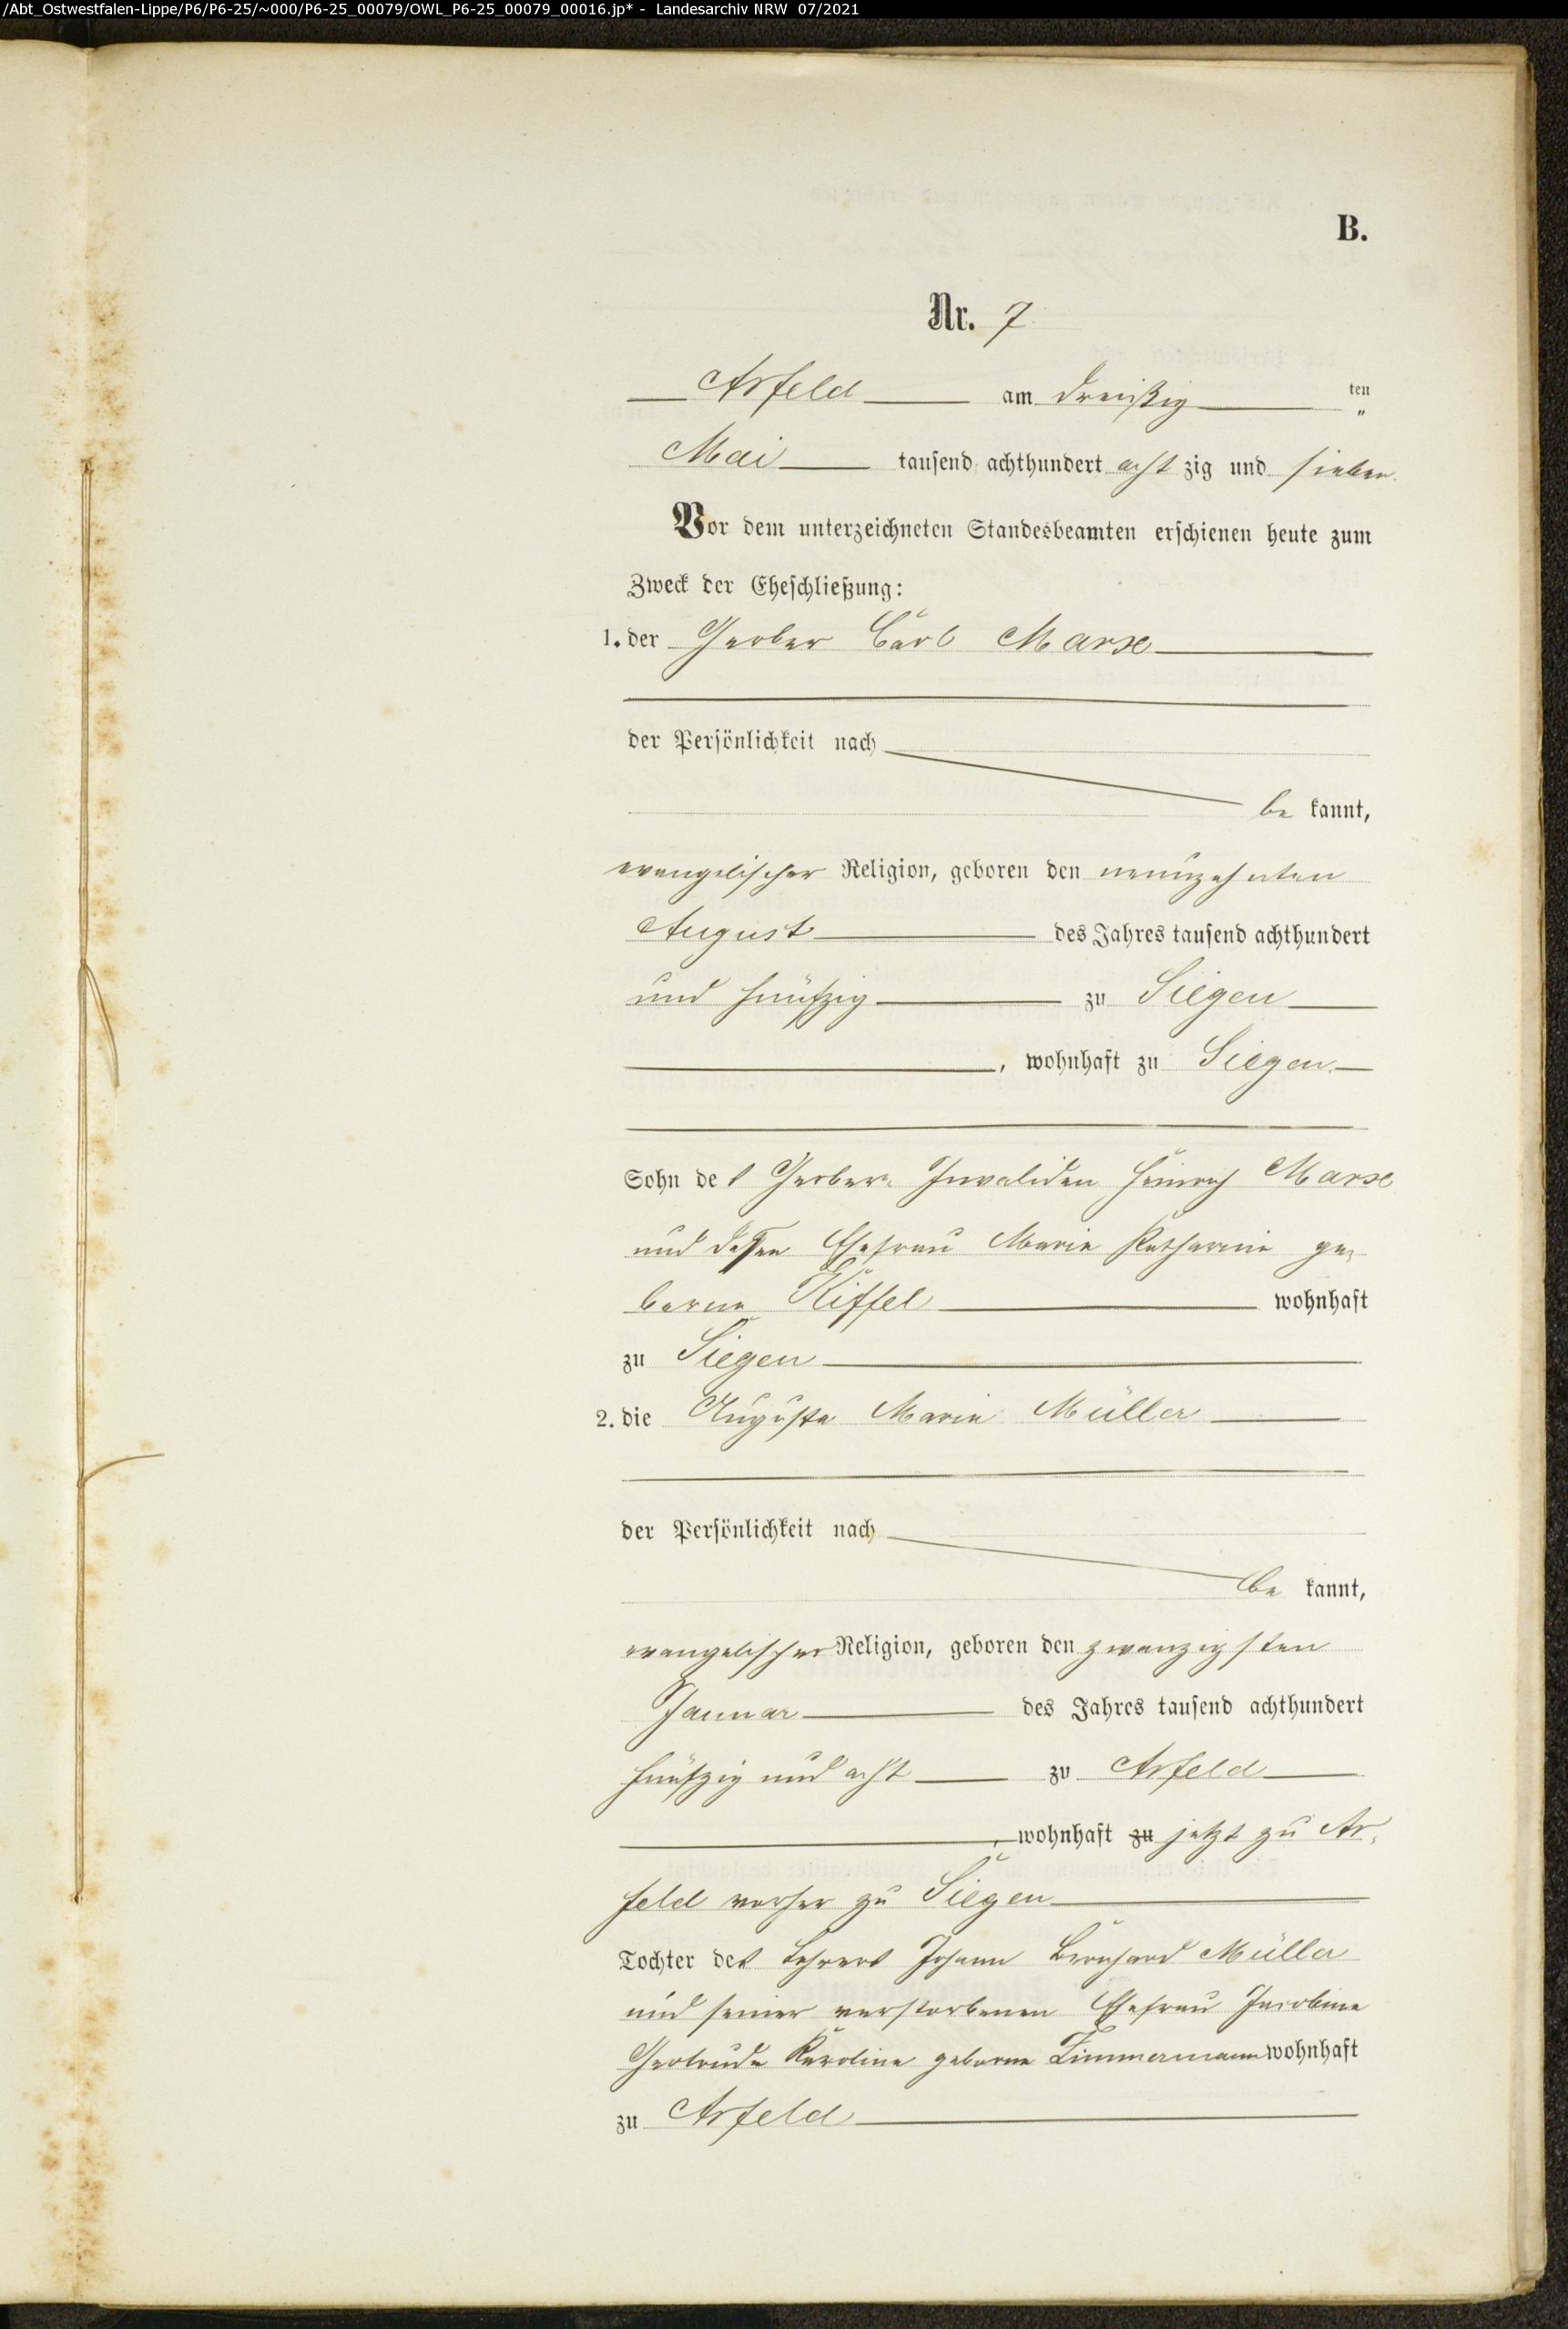 /Abt_Ostwestfalen-Lippe/P6/P6-25/~000/P6-25_00079/OWL_P6-25_00079_00016.jp* - Landesarchiv NRW 07/2021
B.
Nr. 7
Arfeld am dreißig ten
Mai tausend achthundert acht zig und sieben.
Vor dem unterzeichneten Standesbeamten erschienen heute zum
Zweck der Eheschließung:
1. der Gerber Carl Marx
der Persönlichkeit nach
be kannt,
evangelischer Religion, geboren den neunzehnten
August des Jahres tausend achthundert
und fünfzig zu Siegen
, wohnhaft zu Siegen
Sohn des Gerbers Invaliden Heinrich Marx
und dessen Ehefrau Marie Katharine ge-
borne Kiffel wohnhaft
zu Siegen
2. die Auguste Marie Müller
der Persönlichkeit nach
be kannt,
evangelischer Religion, geboren den zwanzigsten
Januar des Jahres tausend achthundert
fünfzig und acht zu Arfeld
, wohnhaft zu jetzt zu Ar-
feld vorher zu Siegen
Tochter des Lehrers Johann Bernhard Müller
und seiner verstorbenen Ehefrau Jacobine
Gertrude Karoline geborne Zimmermann wohnhaft
zu Arfeld